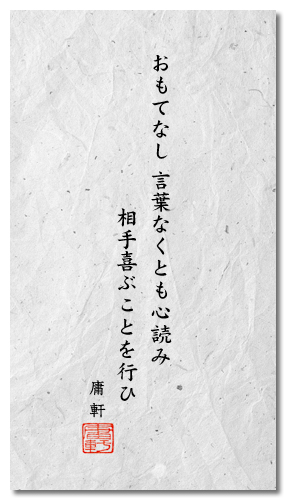 おもてなし 言葉なくとも心読み
相手喜ぶことを行ひ
庸軒
庸軒